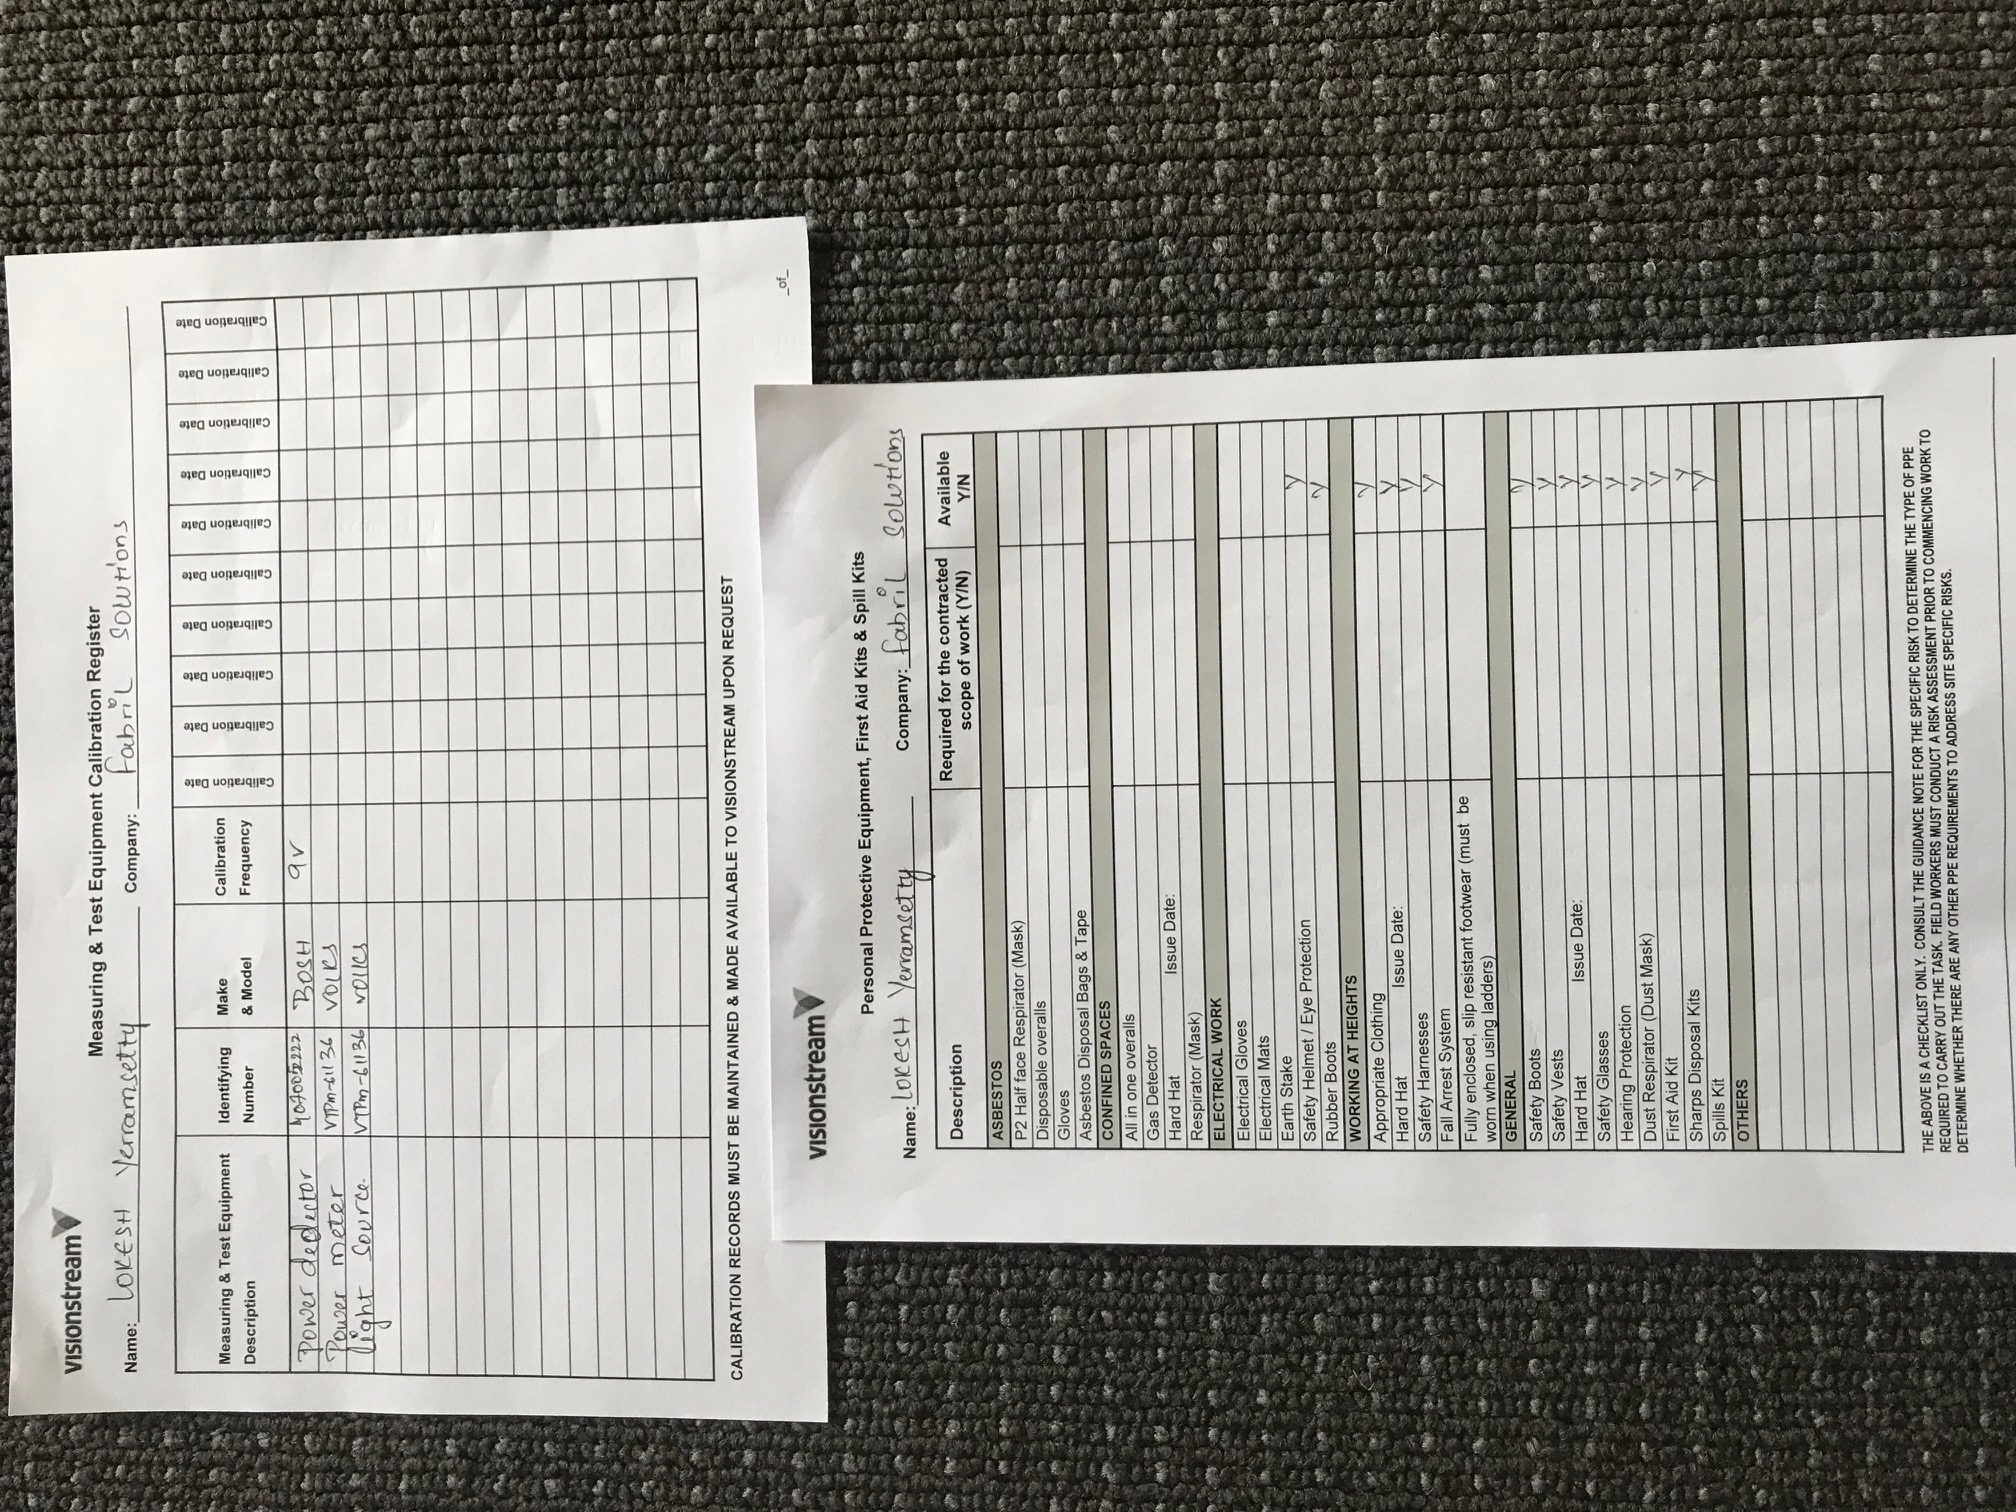 visionstream
Measuring & Test Equipment Calibration Register
Name: LOKESH Yerramsetty Company: fabril solutions
Measuring & Test Equipment Description Identifying Number Make & Model Calibration Frequency Calibration Date Calibration Date Calibration Date Calibration Date Calibration Date Calibration Date Calibration Date Calibration Date Calibration Date Calibration Date
Power dedector BOSH 9v
Power meter VTPm-61136 VOLKS
light Source. VTPm-61136 VOLKS
CALIBRATION RECORDS MUST BE MAINTAINED & MADE AVAILABLE TO VISIONSTREAM UPON REQUEST
_of_
visionstream
Personal Protective Equipment, First Aid Kits & Spill Kits
Name: LOKESH Yerramsetty Company: fabril solutions
Description Required for the contracted scope of work (Y/N) Available Y/N
ASBESTOS
P2 Half face Respirator (Mask)
Disposable overalls
Gloves
Asbestos Disposal Bags & Tape
CONFINED SPACES
All in one overalls
Gas Detector
Hard Hat Issue Date:
Respirator (Mask)
ELECTRICAL WORK
Electrical Gloves
Electrical Mats
Earth Stake
Safety Helmet / Eye Protection Y
Rubber Boots Y
WORKING AT HEIGHTS
Appropriate Clothing Y
Hard Hat Issue Date: Y
Safety Harnesses Y
Fall Arrest System Y
Fully enclosed, slip resistant footwear (must be
worn when using ladders)
GENERAL
Safety Boots Y
Safety Vests Y
Hard Hat Issue Date: Y
Safety Glasses Y
Hearing Protection Y
Dust Respirator (Dust Mask) Y
First Aid Kit Y
Sharps Disposal Kits Y
Spills Kit Y
OTHERS
THE ABOVE IS A CHECKLIST ONLY. CONSULT THE GUIDANCE NOTE FOR THE SPECIFIC RISK TO DETERMINE THE TYPE OF PPE
REQUIRED TO CARRY OUT THE TASK. FIELD WORKERS MUST CONDUCT A RISK ASSESSMENT PRIOR TO COMMENCING WORK TO
DETERMINE WHETHER THERE ARE ANY OTHER PPE REQUIREMENTS TO ADDRESS SITE SPECIFIC RISKS.